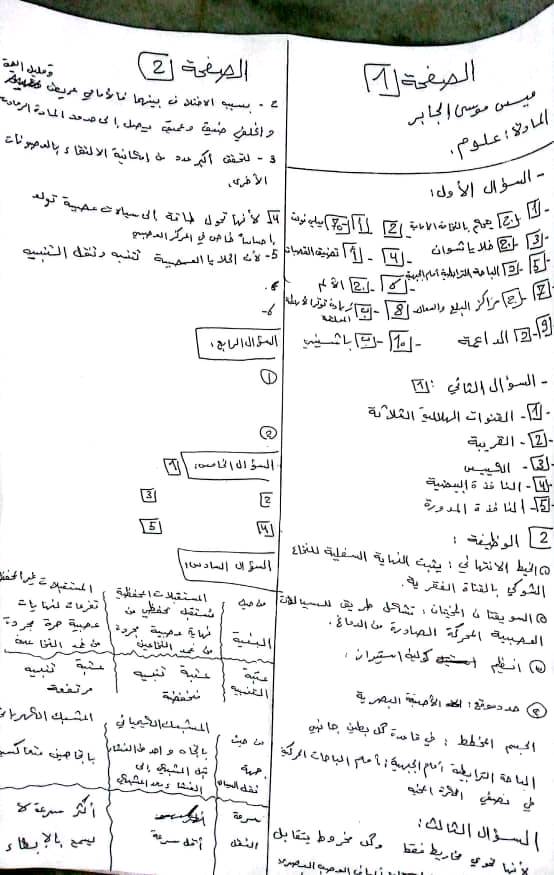 الصفحة 1
ميس موسى الجابر
المادة: علوم.
- السؤال الأول:
3 - فلاشوان 4 - 1
5 - الباحة الترابطية أمام الجبهية 6 - الألم
7 - مراكز البلع والسعال 8 - ب زيادة توتر الأوعية
9 - الداعمة 10 - ب باشيني
- السؤال الثاني: 1
1 - القنوات الهلالية الثلاثة
2 - القريبة
3 - الكييس
4 - النافذة البيضية
5 - النافذة المدورة
2 الوظيفة:
الخيط الانتهائي: يثبت النهاية السفلية للنخاع
الشوكي بالقناة الفقرية.
السويقتان المخيتان: تشكل طريق للسيالات
العصبية المحركة الصادرة من الدماغ.
أنظيم كولين استيراز:
حدد موقع: الأهبية البصرية
الجسم المخطط: في قاعدة كل بطين جانبي
الباحة الترابطية أمام الجبهية: أمام الباحات المحركة
في نصفي الكرة المخية
السؤال الثالث:
لأنها تحوي مخاريط فقط وكل مخروط يتقابل
الصفحة 2
2 - بسبب الاختلاف بينهما فالأمامي عريض وقليل العمق
والخلفي ضيق وعميق يصل إلى حدود المادة الرمادية
3 - لتحقق أكبر عدد من إمكانية الالتقاء بالعصبونات
الأخرى.
4 لأنها تحول طاقة إلى سيالات عصبية تولد
إحساساً خاص في المركز العصبي
5 - لأن الخلايا العصبية تنبه ونقل التنبيه
6 -
السؤال الرابع:
1
2
السؤال الخامس: 1
2 3
4 5
السؤال السادس:
من حيث المستقبلات المحفظية المستقبلات غير المحفظية
البنية مستقبل محفظي من نهاية عصبية مجردة من غمد النخاعين تفرعات لنهايات عصبية حرة مجردة من غمد النخاعين
عتبة التنبيه عتبة تنبيه منخفضة عتبة تنبيه مرتفعة
من حيث المشبك الكيميائي المشبك الكهربائي
جهة نقل السيالة باتجاه واحد من الغشاء قبل المشبكي إلى الغشاء بعد المشبكي باتجاهين متعاكسين
سرعة النقل أقل سرعة أكثر سرعة لا يسمح بالإبطاء